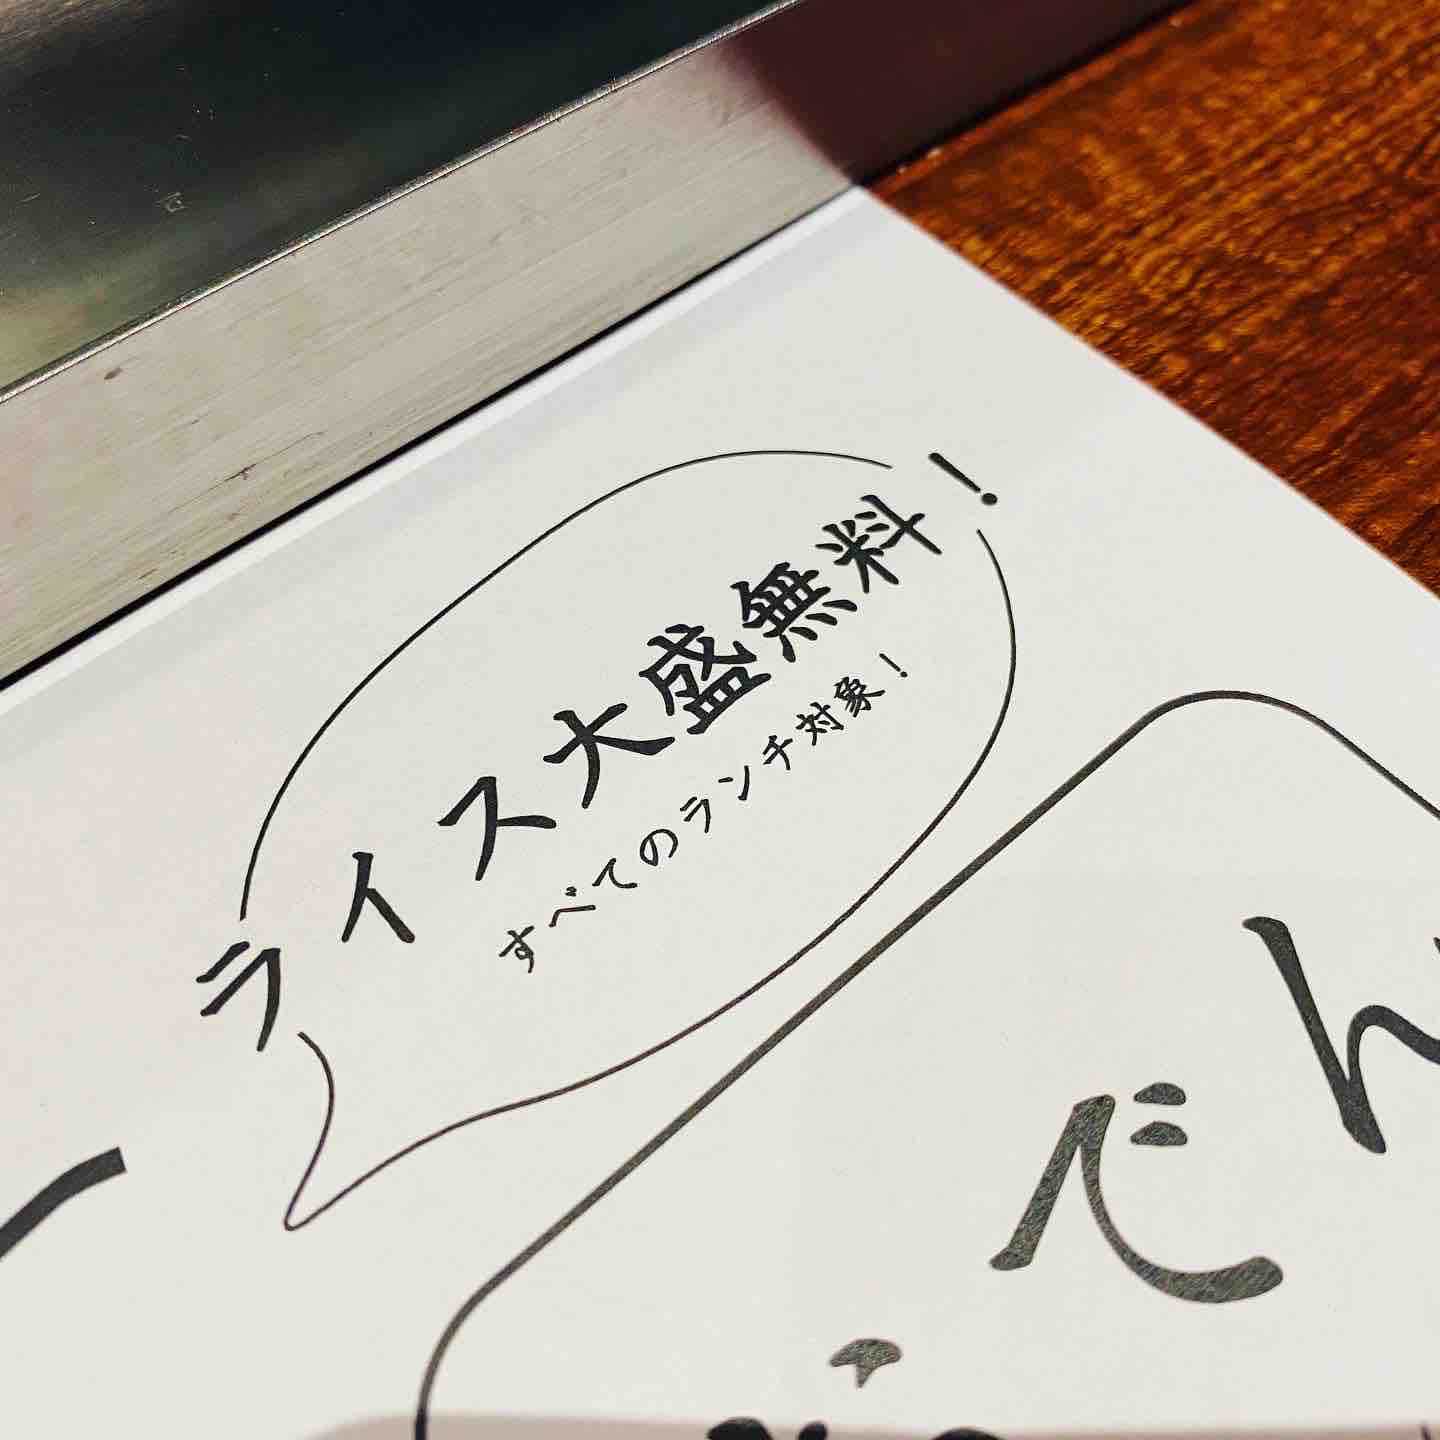 ライス大盛無料！
すべてのランチ対象！
でん